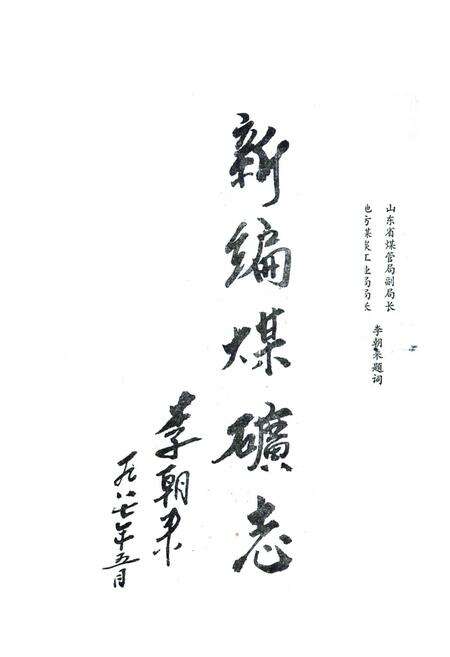 山东省煤管局副局长
地方煤炭工业局局长
李朝题词
新编煤礦志
李朝
一九八七年五月